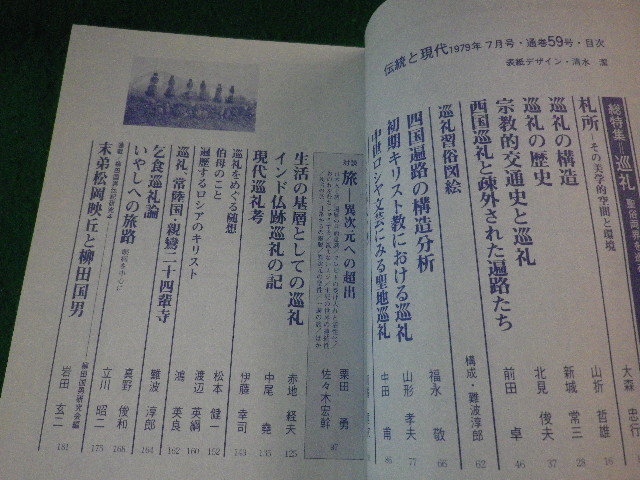 伝統と現代1979年7月号・通巻59号・目次
表紙デザイン・清水
総特集＝巡礼
札所 その美学的空間と環境 大森 忠行 16
巡礼の構造 山折 哲雄 18
巡礼の歴史 新城 常三 28
宗教的交通史と巡礼 北見 俊夫 37
西国巡礼と疎外された遍路たち 前田 卓 46
巡礼習俗図絵 構成・難波淳郎 62
四国遍路の構造分析 福永 敬 66
初期キリスト教における巡礼 山形 孝夫 77
中世ロシヤ文芸にみる聖地巡礼 中田 甫 86
対談 旅 異次元への超出 栗田 勇 佐々木宏幹 97
生活の基層としての巡礼 赤地 経夫 125
インド仏跡巡礼の記 中尾 堯 135
現代巡礼考 伊藤 幸司 143
巡礼をめぐる随想
伯母のこと 松本 健一 152
遍歴するロシアのキリスト 渡辺 英綱 160
巡礼、常陸国・親鸞二十四輩寺 鴻 英良 162
乞食巡礼論 難波 淳郎 164
いやしへの旅路 真野 俊和 168
立川 昭二 175
末弟松岡映丘と柳田国男 柳田国男研究会編 岩田 玄二 181